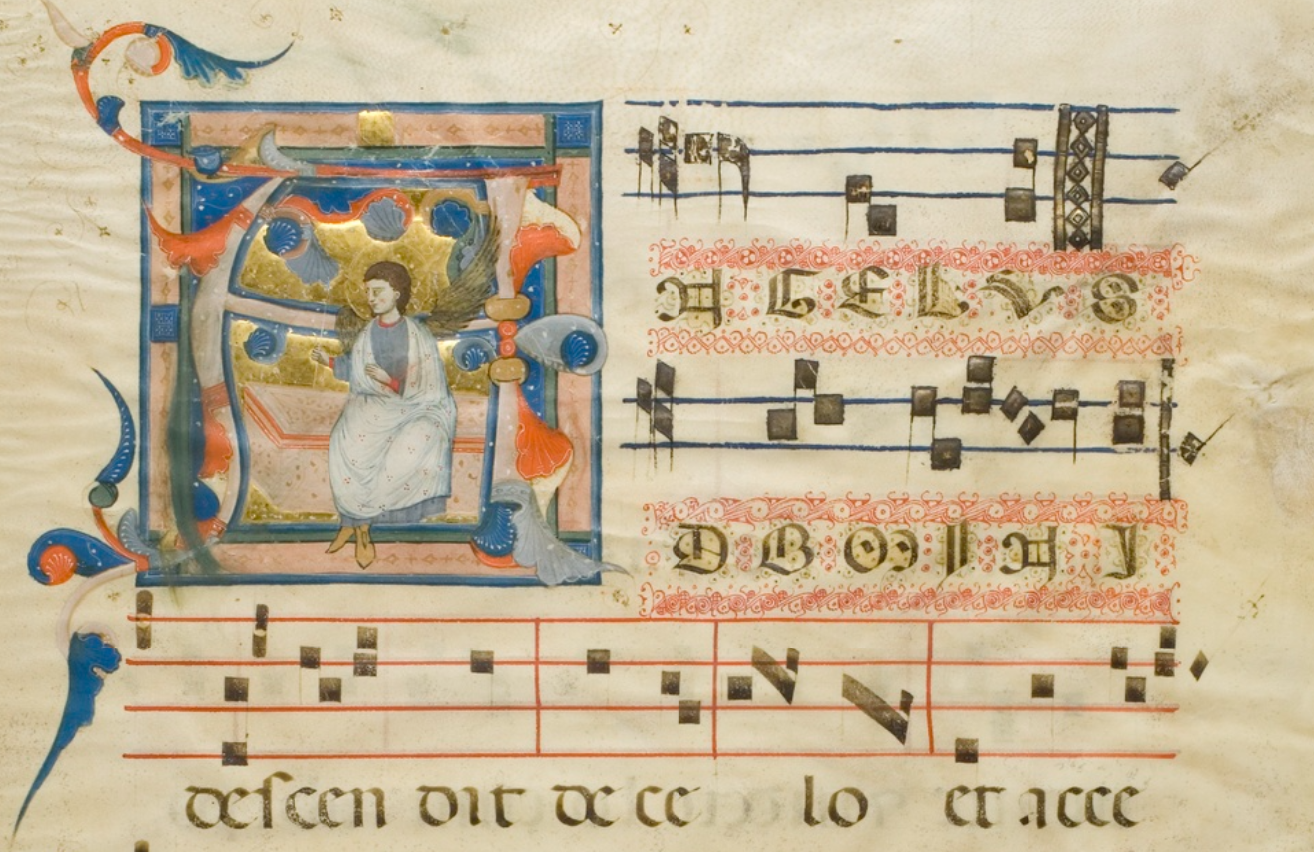 ANGELVS
DOMINI
deſcen dit de ce lo et acce